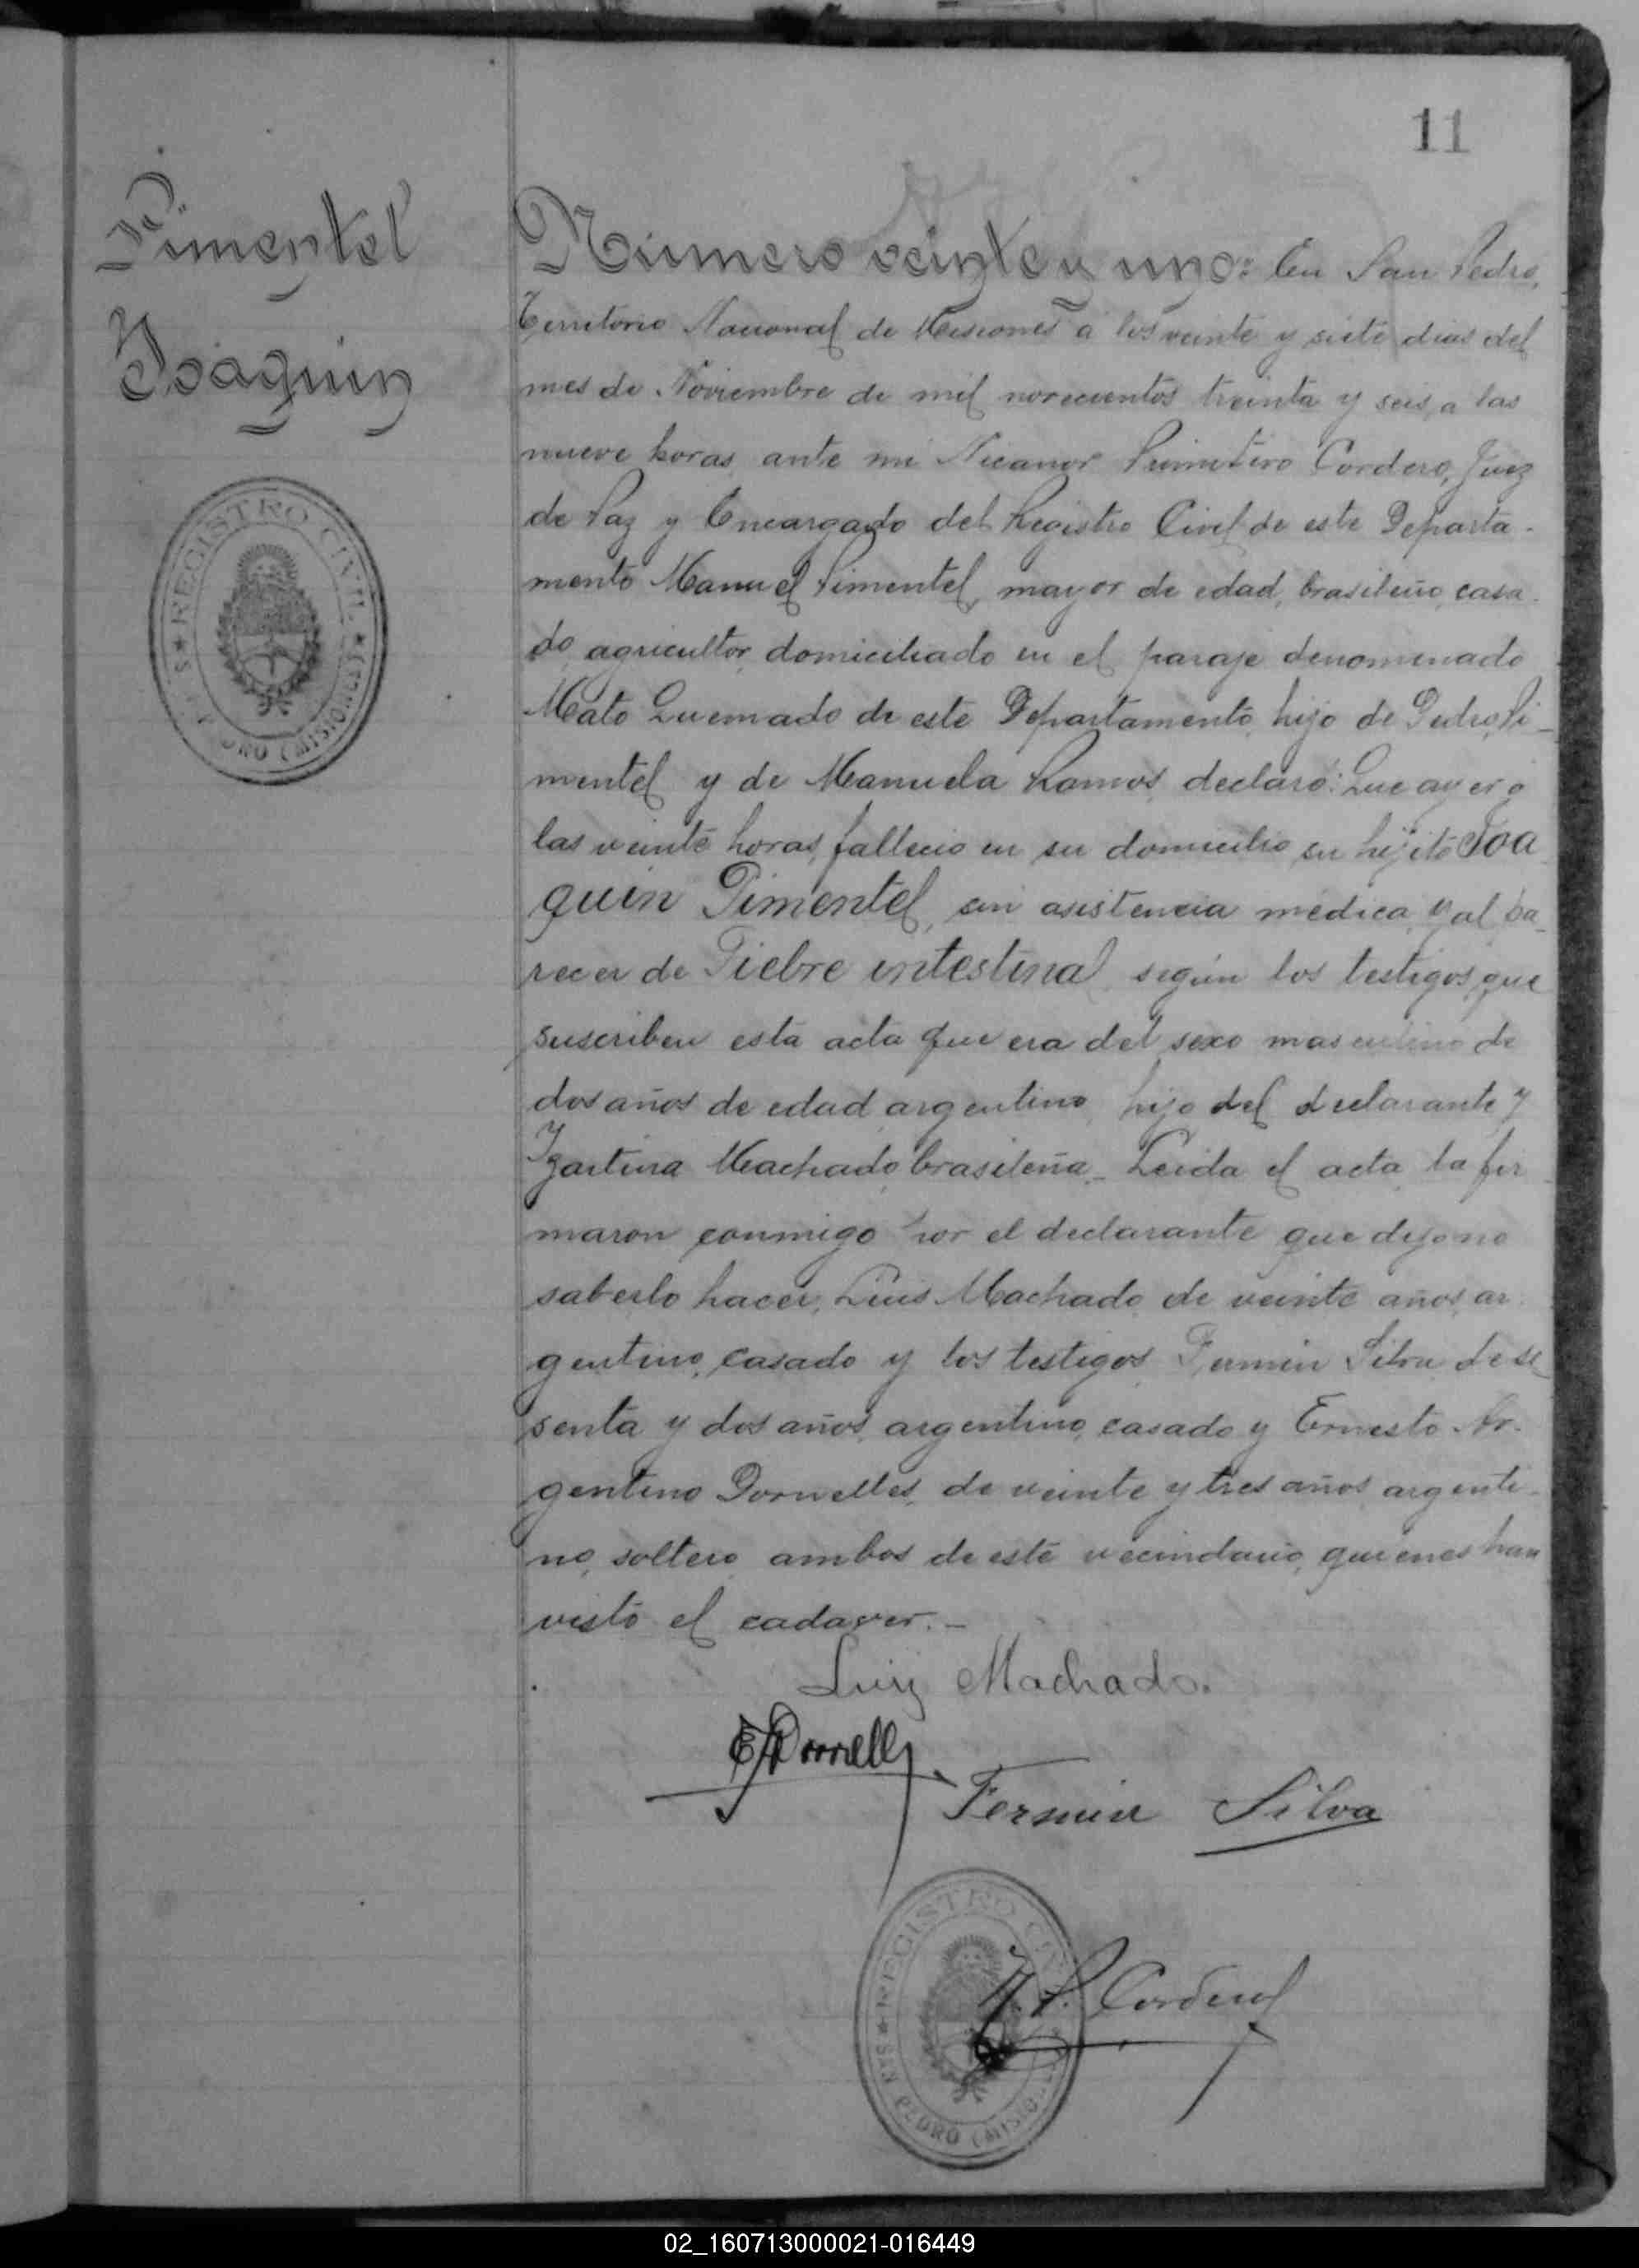 11
Pimentel
Joaquin
REGISTRO CIVIL
S. PEDRO (MISIONES)
Número veinte y uno: En San Pedro,
Territorio Nacional de Misiones á los veinte y siete dias del
mes de Noviembre de mil novecientos treinta y seis, a las
nueve horas, ante mi Nicanor Primitivo Cordero, Juez
de Paz y Encargado del Registro Civil de este Departa-
mento Manuel Pimentel, mayor de edad, brasileño, casa-
do, agricultor, domiciliado en el paraje denominado
Mato Quemado de este Departamento, hijo de Pedro Pi-
mentel y de Manuela Ramos, declaró: Que ayer a
las veinte horas, fallecio en su domicilio su hijito Joa
quin Pimentel, sin asistencia médica, y al pa-
recer de Fiebre intestinal, según los testigos que
suscriben esta acta que era del sexo masculino de
dos años de edad argentino hijo del declarante y
Machado brasileña.- Leida el acta, la fir-
maron conmigo por el declarante que dijo no
saberlo hacer, Luis Machado de veinte años, ar-
gentino, casado y los testigos Fermin Silva de se
senta y dos años, argentino, casado y Ernesto Ar-
gentino Dornelles, de veinte y tres años argenti-
no, soltero ambos de este vecindario, quienes han
visto el cadaver.-
Luiz Machado.
E A Dornelles
Fermin Silva
REGISTRO CIVIL
S. PEDRO (MISIONES)
N. P. Cordero
02_160713000021-016449